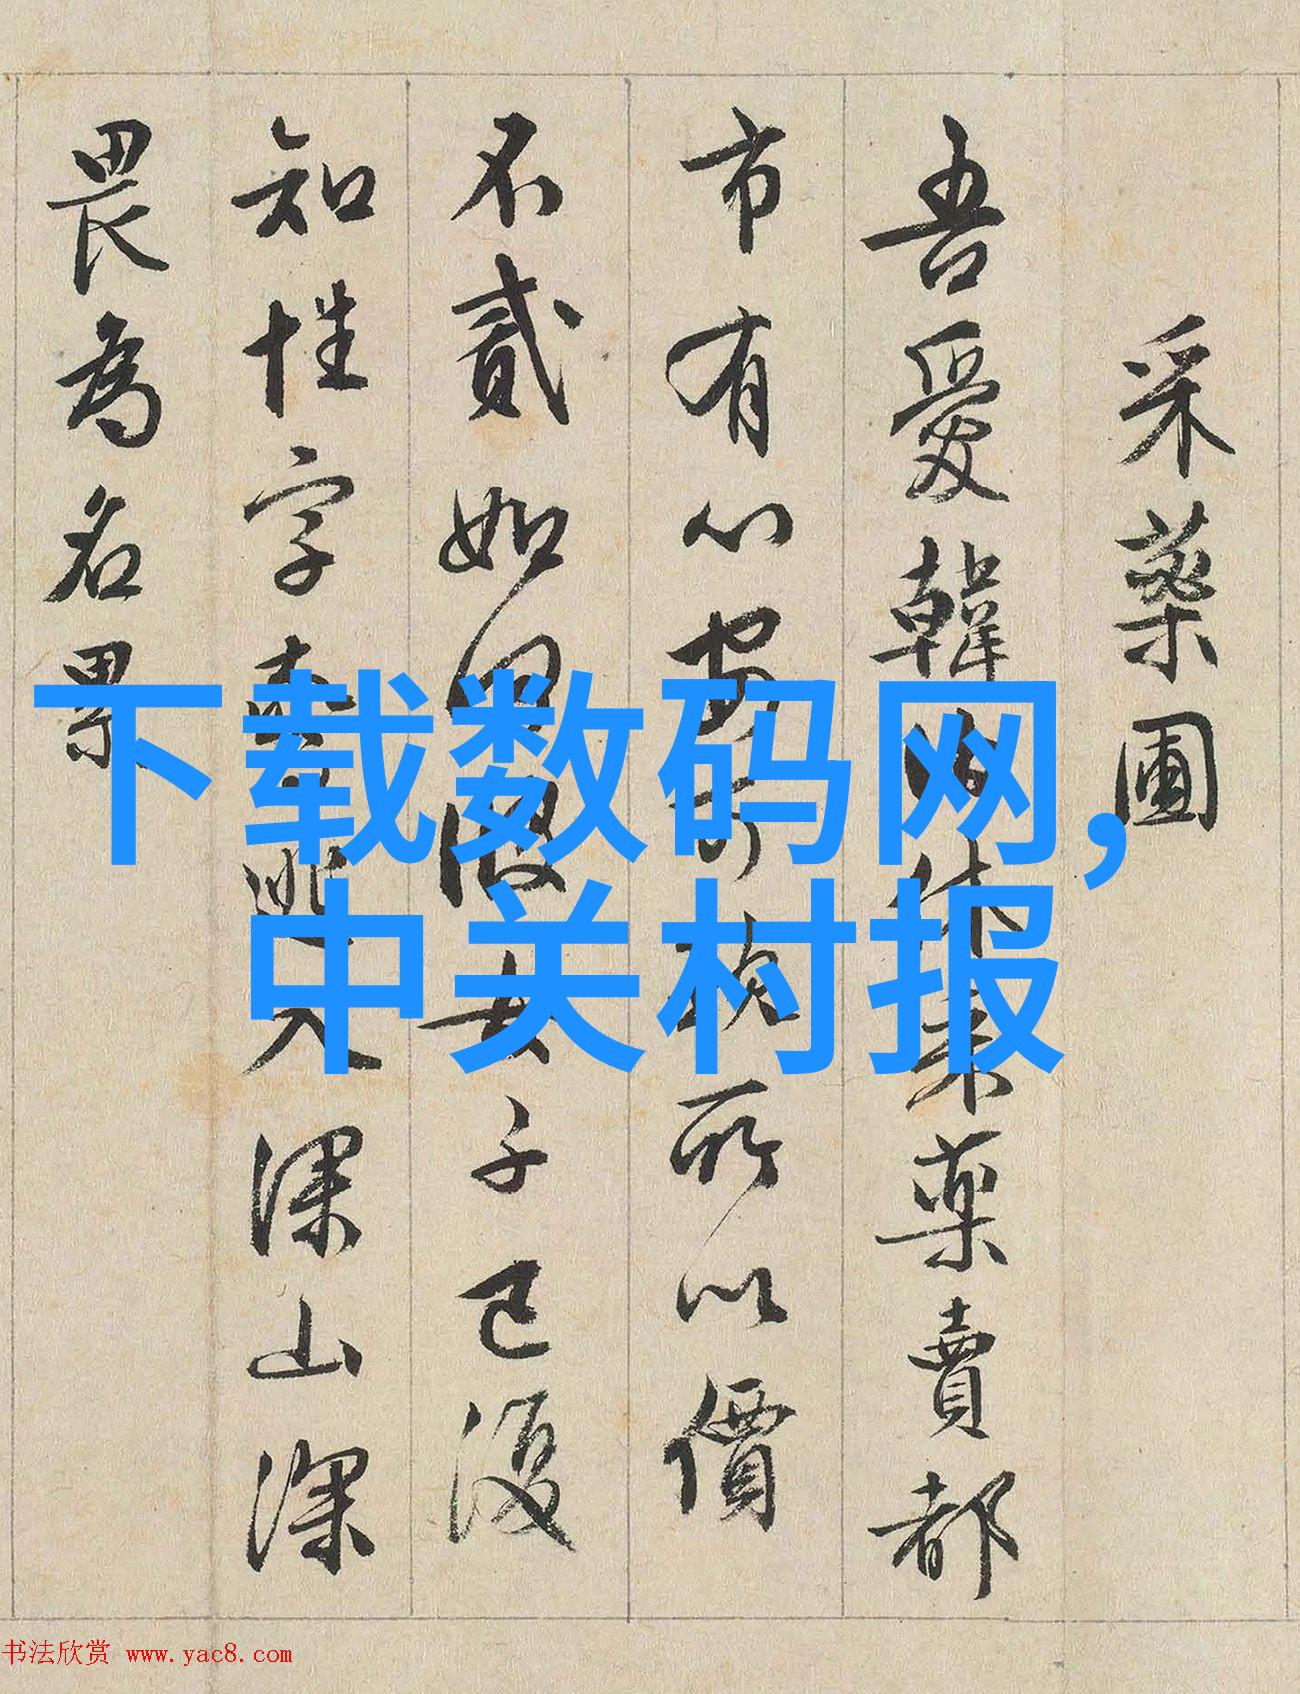 采藥圃
吾愛韓伯休采藥賣都
市有心寧可所以價
不貳如何女子已復
知姓字逃入深山深
畏為名累
下载数码网,
中关村报
书法欣赏 www.yac8.com